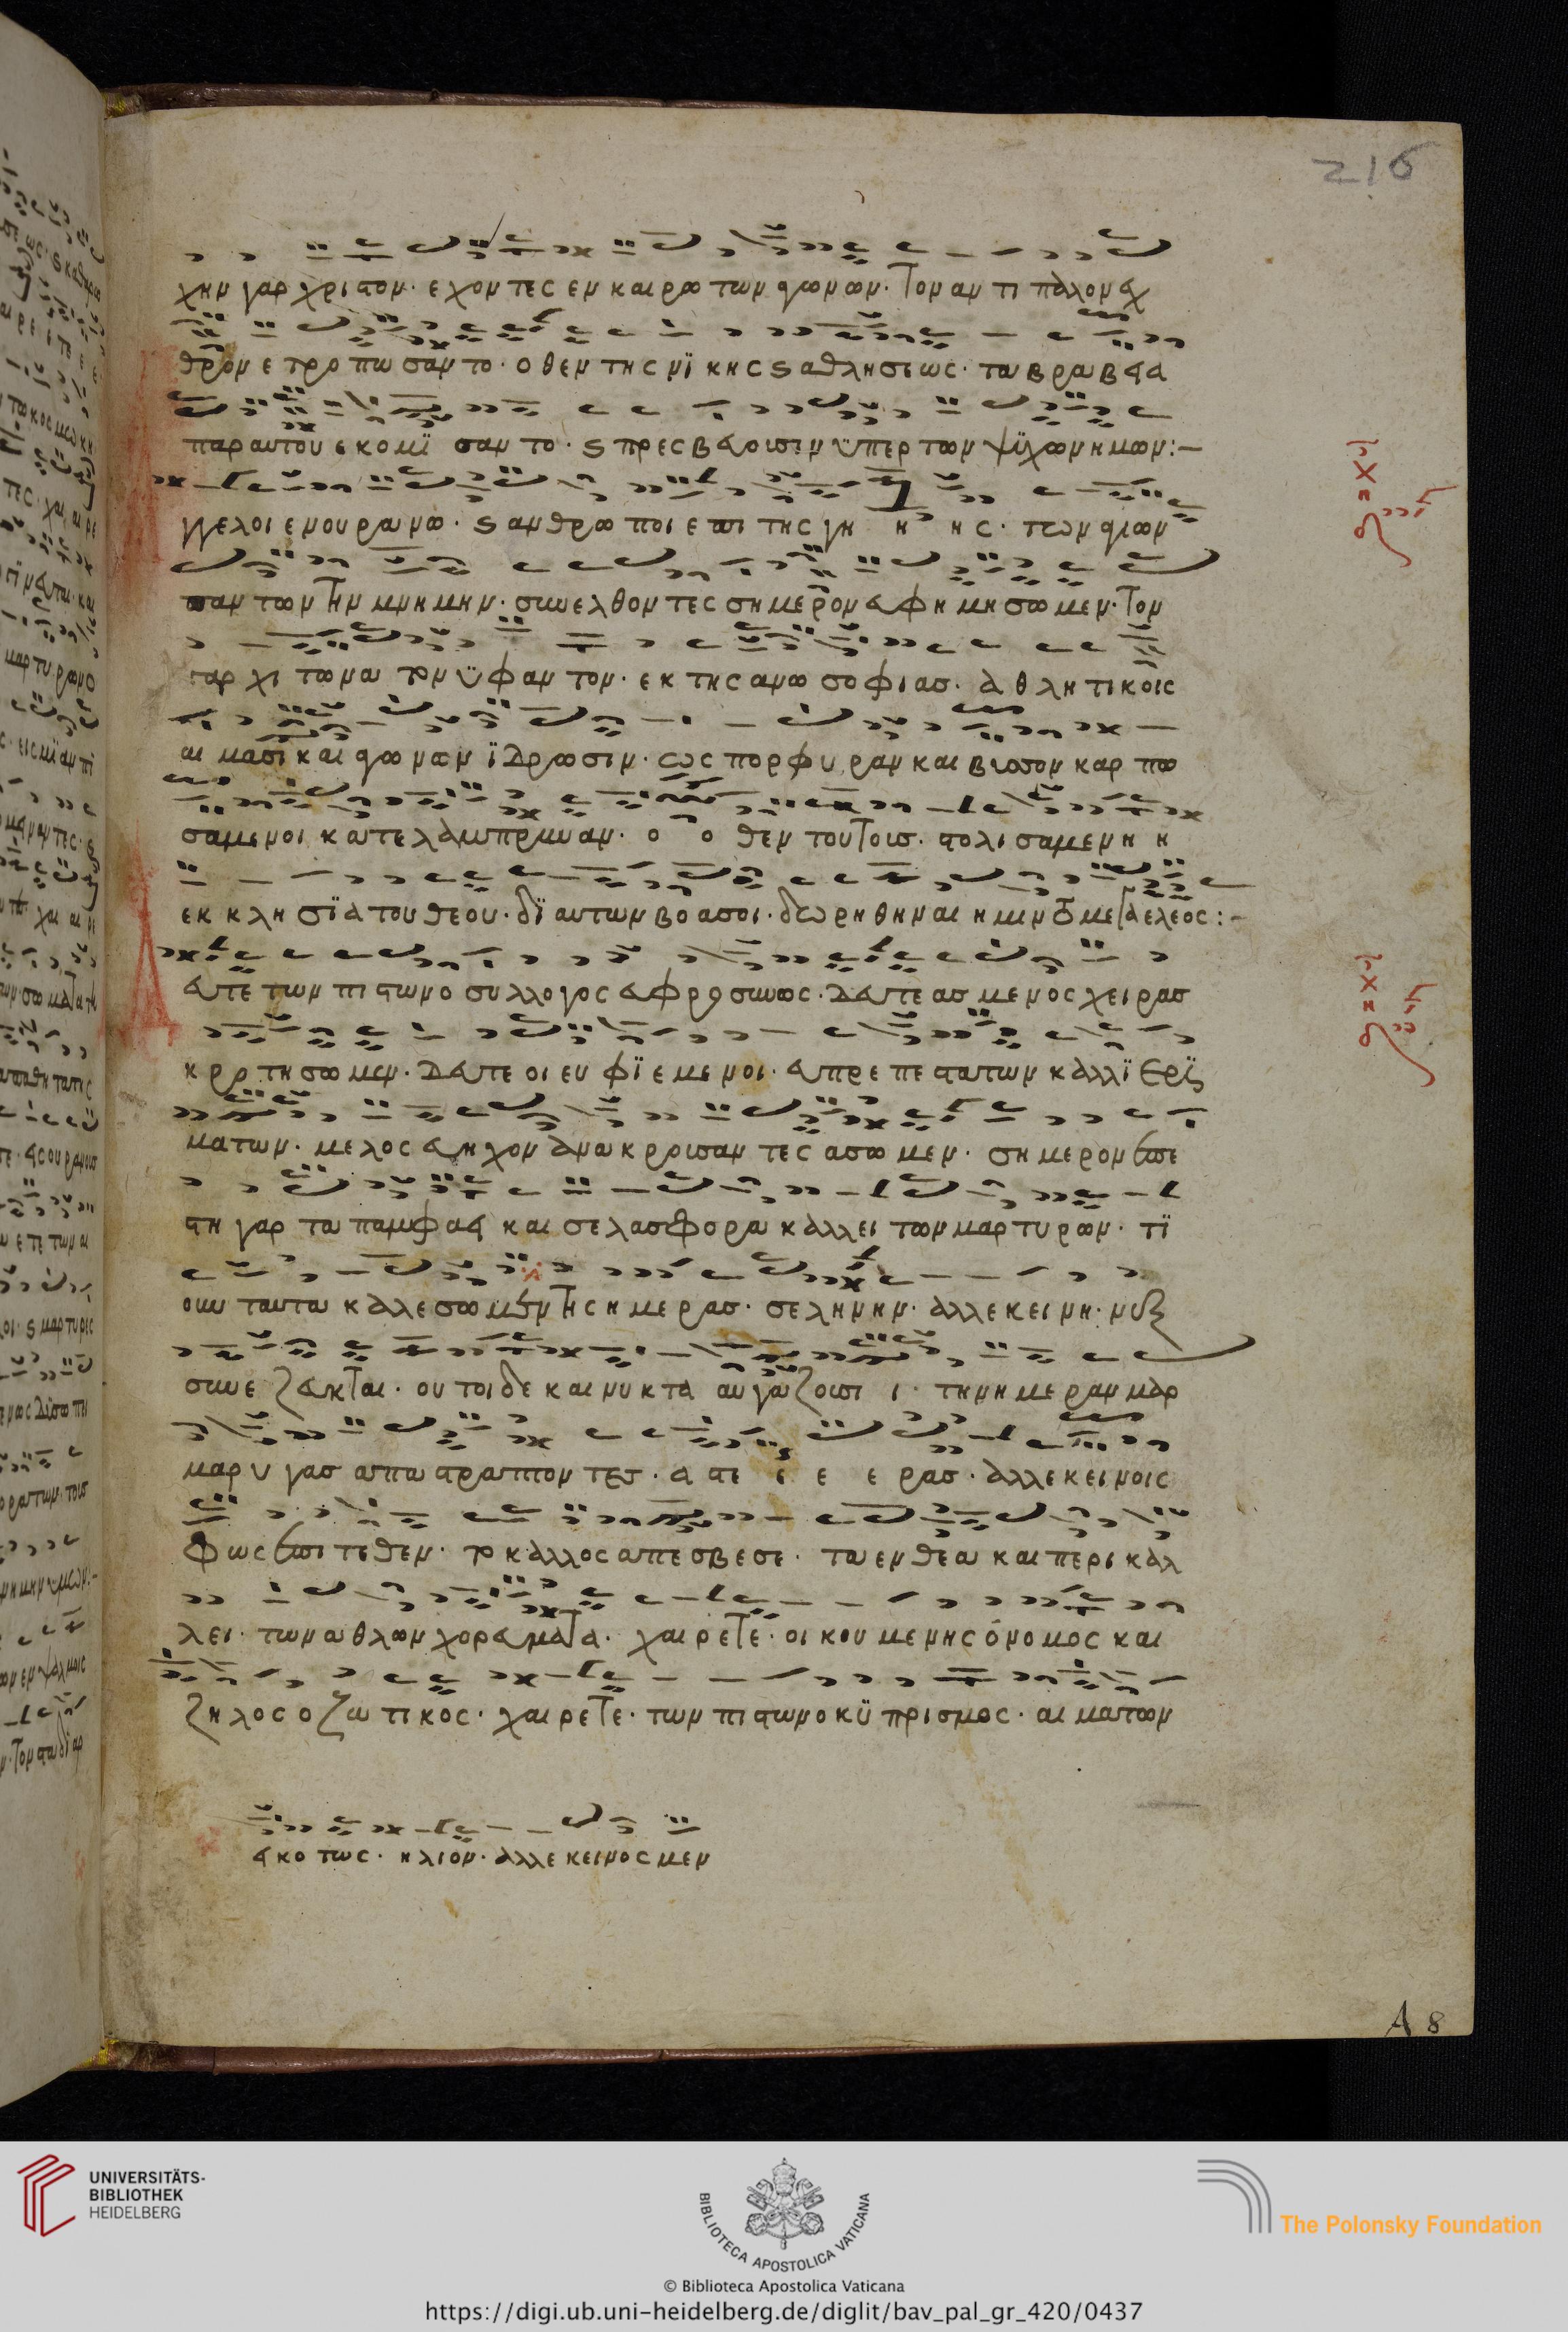 216
χην γαρ χριστον· εχοντες εν καιρω των αγωνων· τον αντιπαλον εχ
θρον ετροπωσαντο· οθεν της νικης ϛ αθλησεως· τα βραβεια
παρ αυτου εκομι σαντο· ϛ πρεσβευουσιν ϋπερ των ψϋχων ημων:—
γγελοι εν ουρανω· ϛ ανθρωποι επι της γη η ης· των αγιων
παντων την μνημην· συνελθοντες σημερον ευφημησωμεν· τον
γαρ χιτωνα τον ϋφαντον· εκ της ανω σοφιας· αθλητικοις
αιμασι και αγωνων ϊδρωσιν· ως πορφυραν και βυσσον καρπω
σαμενοι κατελαμπρυναν· ο ο θεν τουτοις· στολισαμενη η
εκκλησϊα του θεου· δϊ αυτων βοα σοι· δωρηθηναι ημιν το μεγα ελεος:–
ευτε των πιστων ο συλλογος ευφροσυνως· δευτε ασμενος χειρας
κροτησωμεν· δευτε οι ευφϊεμενοι· ευπρεπεστατων καλλϊερϊ
ματων· μελος ευηχον ανακρουσαντες ασωμεν· σημερον επε
στη γαρ τα παμφαη και σελασφορα καλλει των μαρτυρων· τϊ
ουν ταυτα καλεσωμεν της ημερας· σεληνην· αλλ εκεινη· νυξ
συνεζευκται· ουτοι δε και νυκτα αυγαζουσι ι· την ημεραν μαρ
μαρυγας απαστραπτοντες· α στε ε ε ε ρας· αλλ εκεινοις
φως επιτεθεν· το καλλος απεσβεσε· τα ενθεα και περικαλ
λει· των αθλων χορευματα· χαιρετε· οικουμενης ο νομος και
ζηλος ο ζωτικος· χαιρετε· των πιστων ο κϋπρισμος· αιματων
εικοτως· ηλιον· αλλ εκεινος μεν
A 8
UNIVERSITÄTS-
BIBLIOTHEK
HEIDELBERG
BIBLIOTECA APOSTOLICA VATICANA
The Polonsky Foundation
© Biblioteca Apostolica Vaticana
https://digi.ub.uni-heidelberg.de/diglit/bav_pal_gr_420/0437